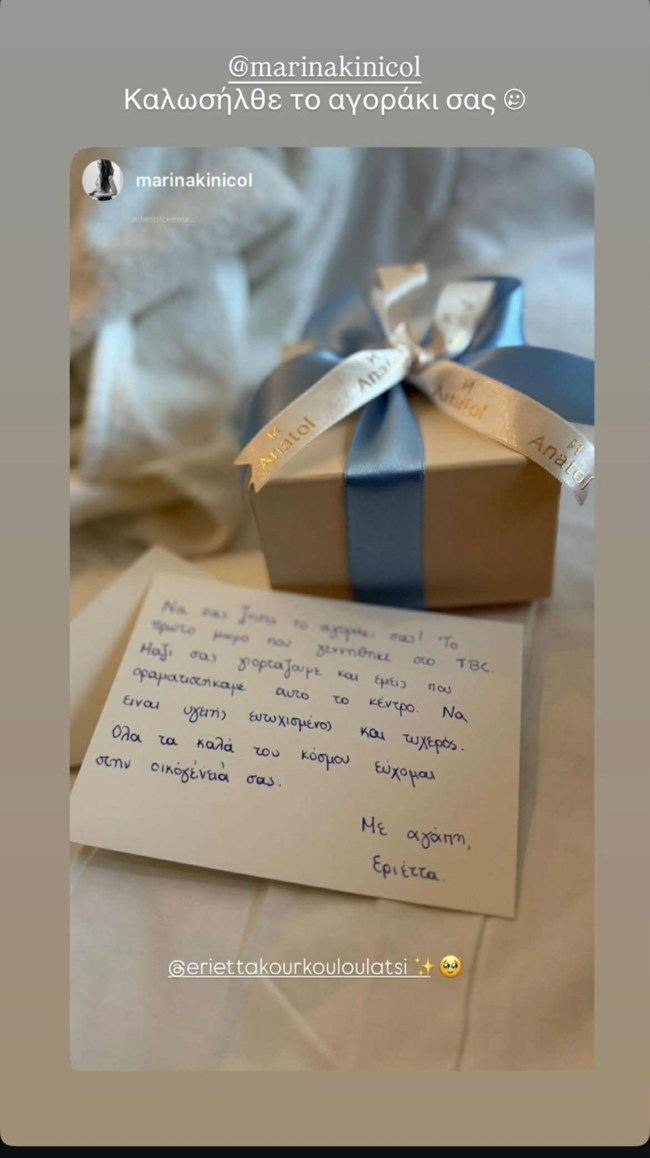 @marinakinicol
Καλωσήλθε το αγοράκι σας
marinakinicol
И
Anatol
И
Anat
И
Anatol
И
Anatol
Να σας ζήσει το αγοράκι σας! Το
πρώτο μωρό που γεννήθηκε στο TBC.
Μαζί σας γιορτάζουμε και εμείς που
οραματιστήκαμε αυτό το κέντρο. Να
είναι υγειής ευτυχισμένος και τυχερός.
Όλα τα καλά του κόσμου εύχομαι
στην οικογένειά σας.
Με αγάπη,
Εριέττα.
@eriettakourkouloulatsi